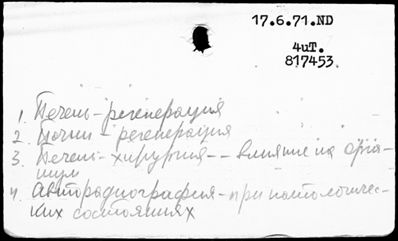 17.6.71.ND
4uT.
817453.
1. Печень-регенерация
2. Почки - регенерация
3. Печень-хирургия -- влияние на орга-
низм
4. Авторадиография-при патологичес-
ких состояниях